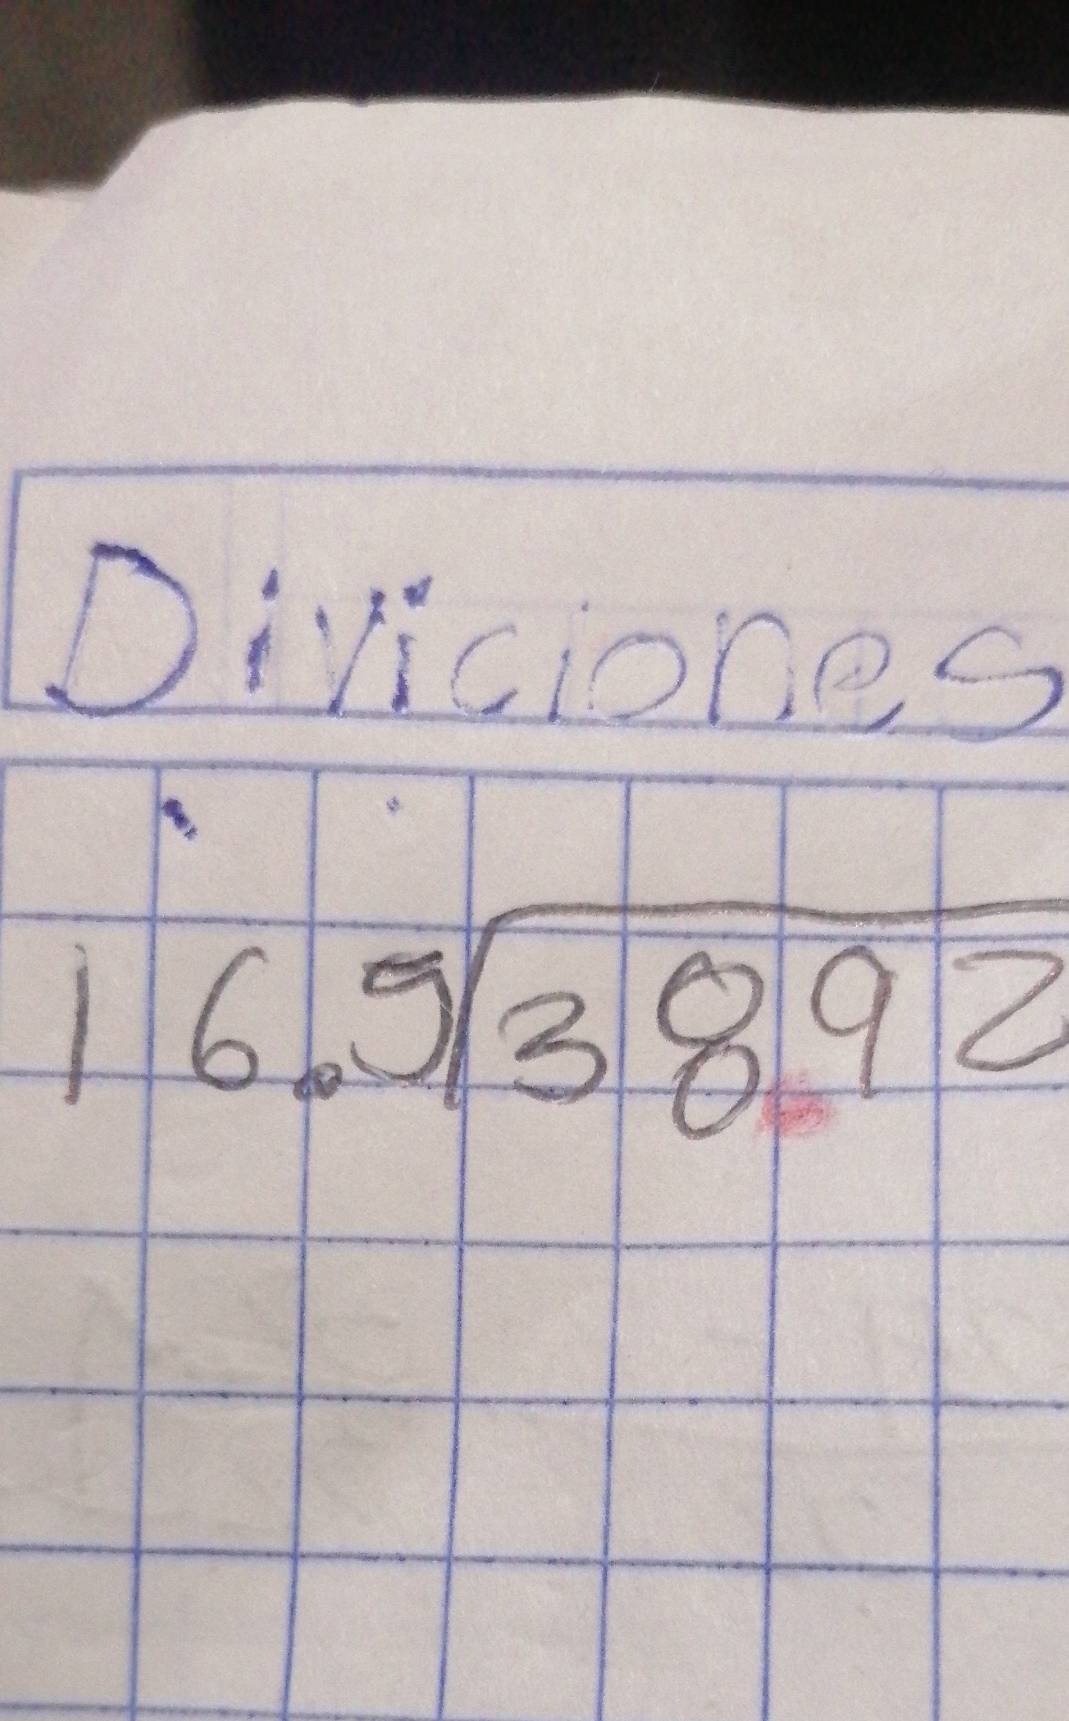 Diviciones
16.5 38.92